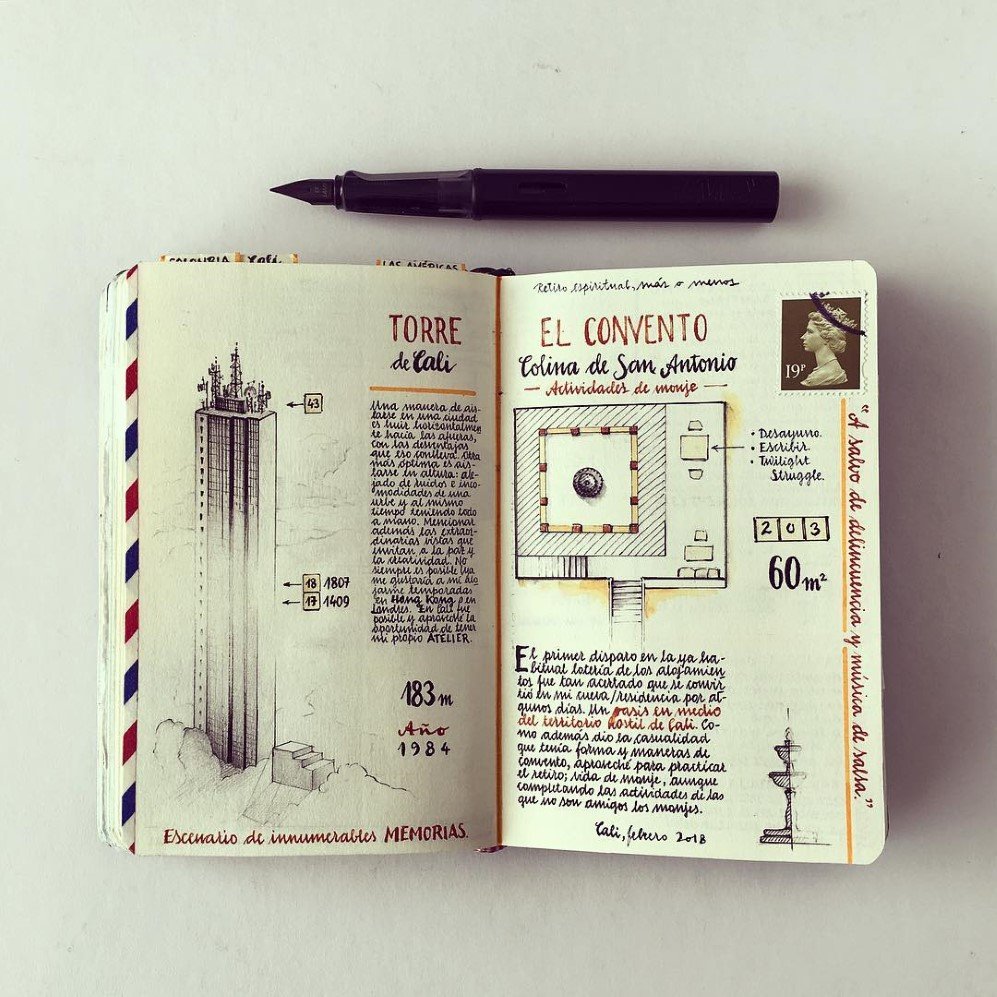 COLOMBIA
Cali
LAS AMÉRICAS
TORRE
de Cali
43
Una manera de ais-
larse en una ciudad
es huir horizontalmen-
te hacia las afueras,
con las desventajas
que eso conlleva. Otra
más óptima es ais-
larse en altura: ale-
jado de ruidos e inco-
modidades de una
urbe y al mismo
tiempo teniendo todo
a mano. Mencionar
además las extraor-
dinarias vistas que
invitan a la paz y
la creatividad. No
siempre es posible (ya
me gustaría a mí alo
jarme temporadas
en Hong Kong o en
Londres. En Cali fue
posible y aproveché la
oportunidad de tener
mi propio ATELIER.
18 1807
17 1409
183 m
Año
1984
Escenario de innumerables MEMORIAS.
Retiro espiritual, más o menos
EL CONVENTO
Colina de San Antonio
Actividades de monje
19P
• Desayuno.
• Escribir.
• Twilight
Struggle.
203
60 m²
El primer disparo en la ya ha-
bitual lotería de los alojamien-
tos fue tan acertado que se convir
tió en mi cueva/residencia por al-
gunos días. Un oasis en medio
del territorio hostil de Cali. Co-
mo además dio la casualidad
que tenía forma y maneras de
convento, aproveché para practicar
el retiro; vida de monje, aunque
completando las actividades de las
que no son amigos los monjes.
Cali, febrero 2018
"A salvo de delincuencia y música de salsa."